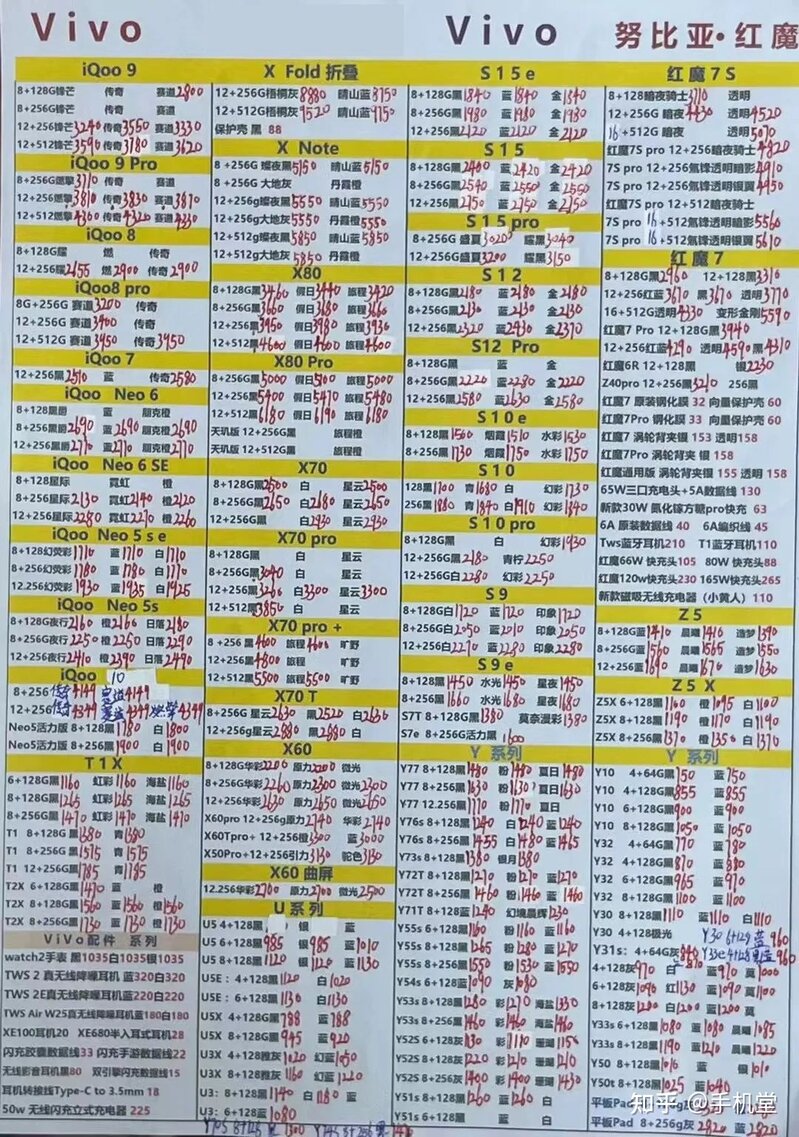 Vivo
Vivo
努比亚·红魔
iQoo 9
8+128G锋芒 传奇 赛道2800
8+256G锋芒 传奇 赛道
12+256锋芒3240传奇3550赛道3330
12+512锋芒3590传奇3780赛道3620
iQoo 9 Pro
8+256G燃擎3710 传奇 赛道
12+256燃擎3810传奇3830赛道3870
12+512燃擎4300传奇4320赛道4330
iQoo 8
8+128G耀 燃 传奇
12+256耀2455 燃2900 传奇2900
iQoo8 pro
8G+256G 赛道3200 传奇
12+256G 赛道3400 传奇
12+512G 赛道3950 传奇3950
iQoo 7
12+256黑2510 蓝 传奇2580
iQoo Neo 6
8+128黑爵 蓝 朋克橙
8+256黑爵2690 蓝2690朋克橙2690
12+256黑爵2770 蓝2770朋克橙2770
iQoo Neo 6 SE
8+128星际 霓虹 橙
8+256星际2130霓虹2140橙2120
12+256星际2280霓虹2270橙2260
iQoo Neo 5 s e
8+128幻荧彩1710 蓝1710 白1710
8+256幻荧彩1780 蓝1780 白1770
12.256幻荧彩1930 蓝1935 白1925
iQoo Neo 5s
8+128G夜行2160 橙2166 日落2180
8+256G夜行2250 橙2250日落2290
12+256G夜行2410橙2390日落2490
iQoo 10
8+256传奇4149 赛道4149
12+256传奇4349 赛道4349 燃擎4349
Neo5活力版 8+128黑1780 白1800
Neo5活力版 8+256黑1900 白1900
T1X
6+128G黑1160 虹彩1160 海盐1160
8+128G黑1265 虹彩1265 海盐1265
8+256G黑1470 虹彩1470 海盐1470
T1 8+128G 黑1380 青1380
T1 8+256G 黑1575 青1575
T1 12+256G黑1785 青1785
T2X 6+128G黑1470 蓝 橙
T2X 8+128G黑1560 蓝1560 橙1560
T2X 8+256G黑1730 蓝1730 橙1730
ViVo配件 系列
watch2手表 黑1035白1035银1035
TWS 2 真无线降噪耳机 蓝320白320
TWS 2E真无线降噪耳机蓝220白220
TWS Air W25真无线降噪耳机蓝180白180
XE100耳机20 XE680半入耳式耳机28
闪充胶囊数据线33 闪充手游数据线22
无线影音耳机黑80 双引擎闪充数据线15
耳机转接线Type-C to 3.5mm 18
50w 无线闪充立式充电器 225
X Fold 折叠
12+256G梧桐灰8880 晴山蓝8750
12+512G梧桐灰9520 晴山蓝9750
保护壳 黑 88
X Note
8+256G 璨夜黑5150 晴山蓝5150
8+256G 大地灰 丹霞橙
12+256g璨夜黑5550 晴山蓝5550
12+256g大地灰5550 丹霞橙5550
12+512g璨夜黑5850 晴山蓝5850
12+512g大地灰5850 丹霞橙
X80
8+128G黑3460 假日3440 旅程3420
8+256G黑3660 假日3680 旅程3660
12+256黑3950 假日3980 旅程3930
12+512黑4600 假日4600 旅程4600
X80 Pro
8+256G黑5000 假日5100 旅程5000
12+256黑5400 假日5470 旅程5480
12+512黑6180 假日6190 旅程6180
天玑版 12+256G黑 旅程橙
天玑版 12+512G黑 旅程橙
X70
8+128G黑2500 白 星云2500
8+256G黑2650 白2680 星云2650
12+256G黑 白2930 星云2930
X70 pro
8+128G黑 白 星云
8+256G黑3040 白 星云
12+256黑3260 白3300 星云3300
12+512黑3850 白 星云
X70 pro +
8+256 黑4600 旅程4600 旷野
12+256黑4800 旅程 旷野
12+512黑5500 旅程5500 旷野
X70 T
8+256G 星云2630 黑2520白2630
12+256g星云2880 黑2880 白
X60
8+128G华彩2200 原力2200 微光
8+256G华彩2260 原力2300 微光2300
12+256华彩2630 原力2650 微光2650
X60pro 12+256g原力2740 华彩2740
X60Tpro+ 12+256橙3300 黑3000
X50Pro+12+256引力3130 驼色3130
X60 曲屏
12.256华彩2700 原力2700微光2500
U 系列
U5 4+128黑 银 蓝
U5 6+128黑985 银985 蓝1010
U5 8+128黑1120 银1120 蓝1130
U5E：4+128黑1120 白1020
U5E：6+128黑1130 白1130
U5X 4+128G黑788 蓝788
U5X 8+256G黑945 蓝920
U3X 4+128雅灰1020 幻蓝1050
U3X 6+128雅灰1160 幻蓝1220
U3：8+128G黑1140 白1180 蓝
U3：6+128蓝1080
S 1 5 e
8+128G黑1840 蓝1840 金1840
8+256G黑1980 蓝1980 金1980
12+256黑2120 蓝2120 金2120
S 1 5
8+128G黑2400 蓝2420 金2420
8+256G黑2540 蓝2550 金2550
12+256黑2750 蓝2750 金2750
S 1 5 pro
8+256G 盛夏3020 耀黑3040
12+256G 盛夏3200 耀黑3150
S 1 2
8+128G黑2180 蓝2180 金2180
8+256G黑2130 蓝2130 金2130
12+256黑2320 蓝2430 金2370
S12 Pro
8+128G黑 蓝 金
8+256G黑2220 蓝2280 金2220
12+256黑2580 蓝2630 金2580
S 1 0 e
8+128黑1560 烟霞1510 水彩1530
8+256黑1730 烟霞1750 水彩1750
S 1 0
128黑1700 青1680 白 幻彩1730
256黑1880 青1840 白1910 幻彩1840
S 1 0 pro
8+128G黑 白 幻彩1930
12+256G黑2180 青柠2250
12+256G白2280 幻彩2250
S 9
8+128G白1720 蓝1720 印象1720
8+256G白2050 蓝2010 印象2050
12+256白2270 蓝2280 印象2280
S 9 e
8+128黑1450 水光1450 星夜1450
8+256黑1660 水光1680 星夜1680
S7T 8+128G黑1380 莫奈漫彩1380
S7e 8+256G活力黑1600
Y 系列
Y77 8+128黑1480 粉1480 夏日1480
Y77 8+256黑1630 粉1630夏日1630
Y77 12.256黑1770 粉1770 夏日
Y76s 8+128黑1240 白1240 蓝1240
Y76s 8+256黑1455 白1480 蓝1465
Y73s 8+128黑1380 银月1380
Y72T 8+128黑1270 粉1270 蓝1270
Y72T 8+256黑1460 粉1460 蓝1460
Y71T 8+128黑1240 幻境晨辉1230
Y55s 6+128黑1160 粉1160 蓝1160
Y55s 8+128黑1265 粉1280 蓝1270
Y55s 8+256黑1520 粉1530 蓝1520
Y54s 6+128蓝1090 灰1080
Y53s 8+128黑1280 彩1270 海盐1330
Y53s 8+256黑1460 彩1460 海盐1460
Y52S 6+128灰1130 彩1110 珊瑚1156
Y52S 8+128灰1220 彩1210 珊瑚1210
Y52S 8+256灰1400 彩1400 珊瑚1430
Y51s 8+128黑1260 蓝 白
Y51s 6+128黑 蓝 白
红 魔 7 S
8+128暗夜骑士3710 透明
12+256G 暗夜4430 透明4520
16+512G 暗夜 透明5070
红魔7S pro 12+256暗夜骑士4820
7S pro 12+256氘锋透明暗影4910
7S pro 12+256氘锋透明银翼4950
红魔7S pro 12+512暗夜骑士
7S pro 16+512氘锋透明暗影5560
7S pro 16+512氘锋透明银翼5610
红 魔 7
8+128G黑2960 12+128黑3310
12+256红蓝3670 黑3670 透明3770
16+512G透明4330 变形金刚5590
红魔7 Pro 12+128G黑3940
12+256红蓝4290 透明4590黑4310
红魔6R 12+128黑 银2230
Z40pro 12+256黑3210 256黑
红魔7 原装钢化膜 32 向量保护壳 60
红魔7Pro 钢化膜 33 向量保护壳 60
红魔7 涡轮背夹 银 153 透明158
红魔7Pro 涡轮背夹 银 158
红魔通用版 涡轮背夹 银 155 透明 158
65W三口充电头+5A数据线 130
新款30W 氮化镓方糖pro快充 63
6A 原装数据线 40 6A编织线 45
Tws蓝牙耳机210 T1蓝牙耳机110
红魔66W 快充头105 80W 快充头88
红魔120w快充头230 165W快充头265
新款磁吸无线充电器（小黄人）110
Z 5
8+128G黑1410 晨曦1410 逐梦1390
8+256G黑1560 晨曦1565 逐梦1550
12+256黑1690 晨曦1670 逐梦1630
Z 5 X
Z5X 6+128黑1100 橙1095 白1100
Z5X 8+128黑1190 橙1170 白1190
Z5X 8+256黑1370 橙1350 白1370
Y 系列
Y10 4+64G黑750 蓝750
Y10 4+128G黑855 蓝855
Y10 6+128G黑900 蓝900
Y10 8+128G黑1050 蓝1050
Y32 4+64G黑770 蓝780
Y32 4+128G黑870 蓝880
Y32 6+128G黑965 蓝970
Y32 8+128G黑1100 蓝1100
Y30 8+128黑1110 蓝1110 白1110
Y30 4+128极光 Y30 6+128 蓝960
Y31s：4+64G灰840
4+128灰970 白 蓝970 莫1000
6+128灰1090 红1130 蓝1090 莫1100
8+128灰1200 白1200 蓝1200 莫
Y33s 6+128黑1080 蓝1080 晨曦1085
Y33s 8+128黑1190 蓝1210 晨曦1220
Y50 8+128黑1010 蓝 银
Y50t 8+128黑1025 蓝1040
平板Pad
平板Pad 8+256g灰2820 蓝2820
知乎 @手机堂